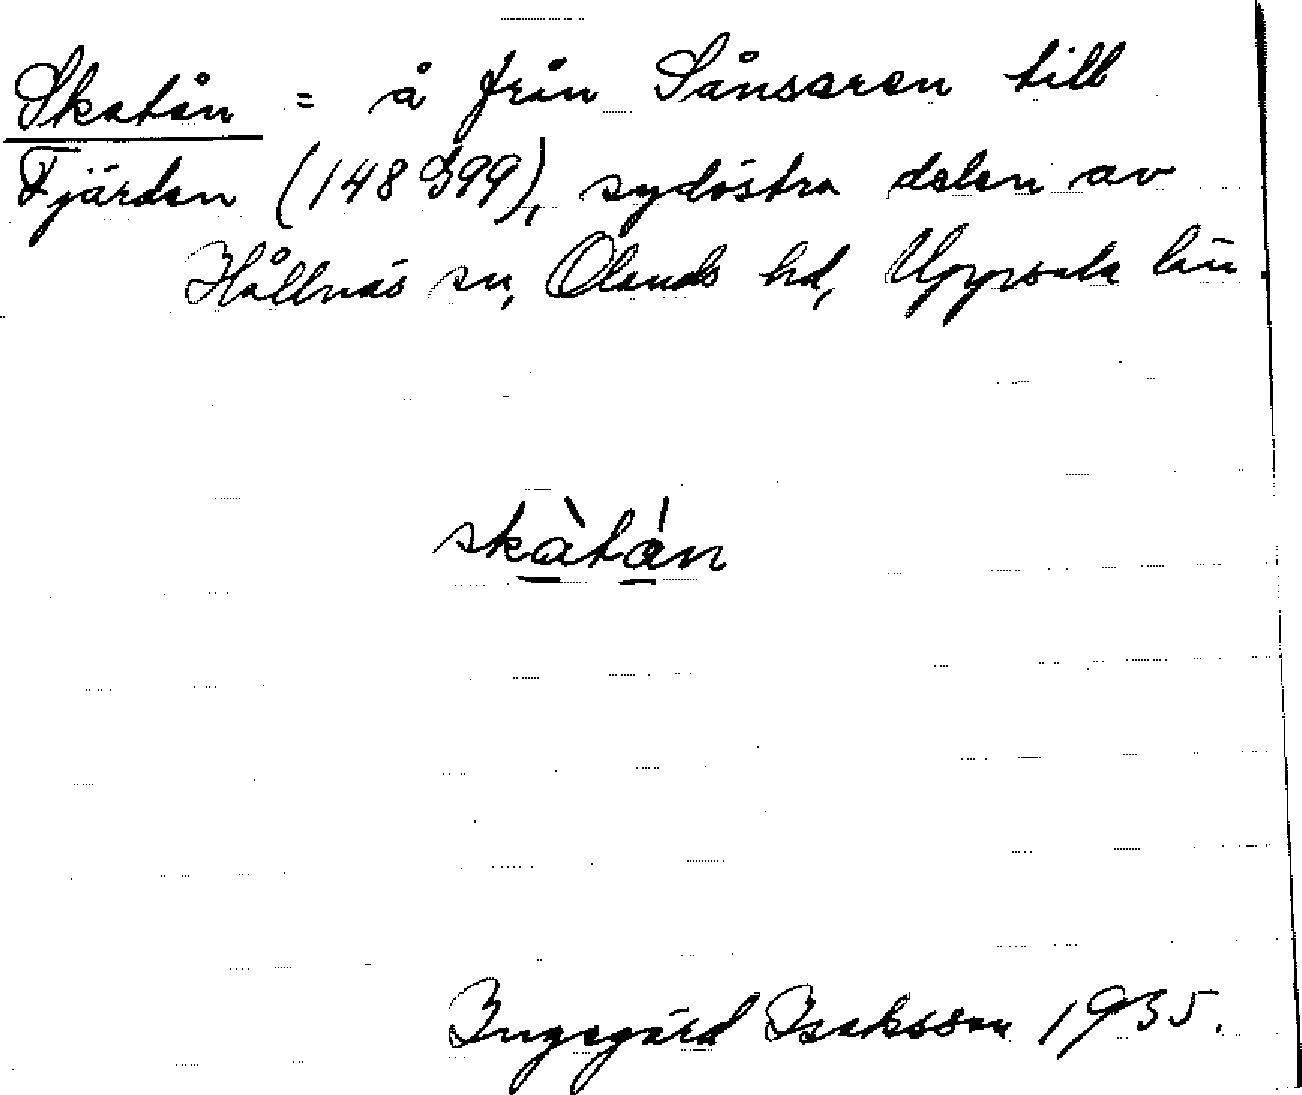 Skatån = å från Sånsaren till
Fjärden (148 G99), sydöstra delen av
Hållnäs sn, Olands hd, Uppsala län.
skàtán
Ingegärd Isaksson 1935.